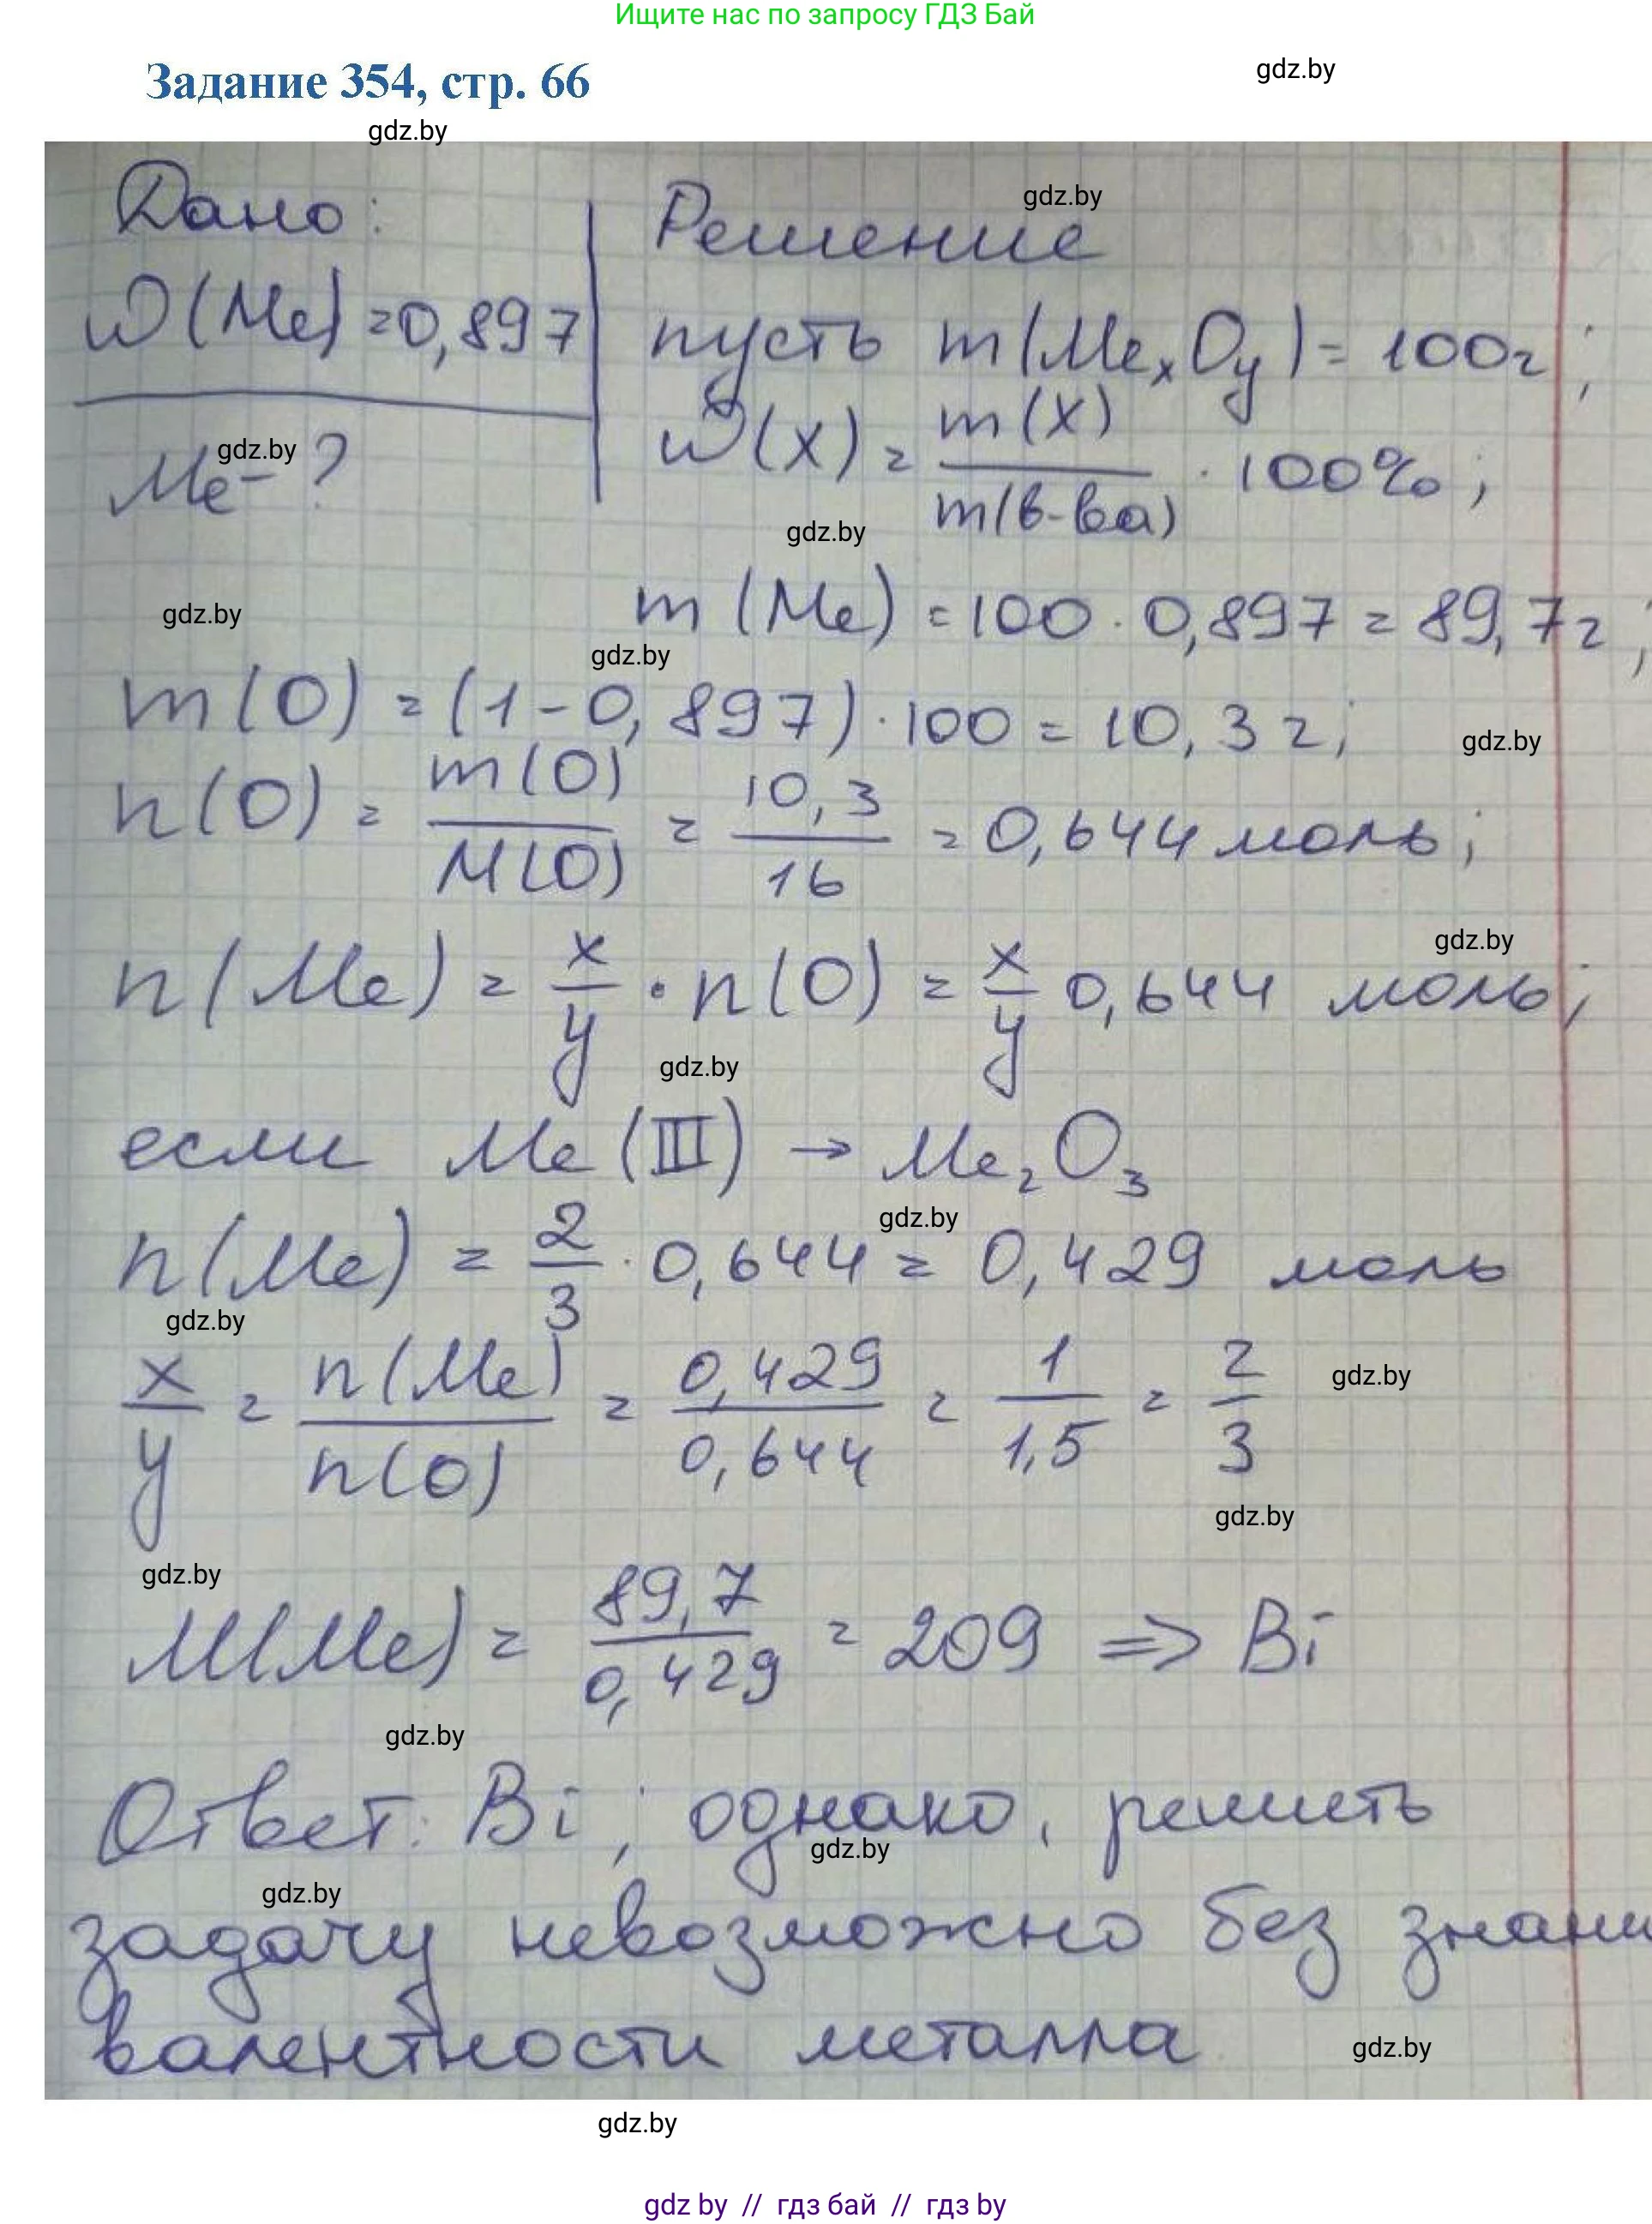 Ищите нас по запросу ГДЗ Бай
Задание 354, стр. 66
gdz.by
gdz.by
Дано:
Решение
gdz.by
ω(Me) = 0,897
пусть m(MeₓOᵧ) = 100г;
Me - ?
gdz.by
ω(x) = m(x) / m(в-ва) · 100%;
gdz.by
gdz.by
m(Me) = 100 · 0,897 = 89,7г;
gdz.by
m(O) = (1-0,897) · 100 = 10,3г;
gdz.by
n(O) = m(O) / M(O) = 10,3 / 16 = 0,644 моль;
gdz.by
n(Me) = x/y · n(O) = x/y 0,644 моль;
gdz.by
если Me(III) → Me₂O₃
gdz.by
n(Me) = 2/3 · 0,644 = 0,429 моль
gdz.by
x/y = n(Me) / n(O) = 0,429 / 0,644 = 1 / 1,5 = 2/3
gdz.by
gdz.by
gdz.by
M(Me) = 89,7 / 0,429 = 209 ⇒ Bi
gdz.by
Ответ: Bi; однако, решить
gdz.by
gdz.by
задачу невозможно без знани
валентности металла
gdz.by
gdz.by
gdz by // гдз бай // гдз by